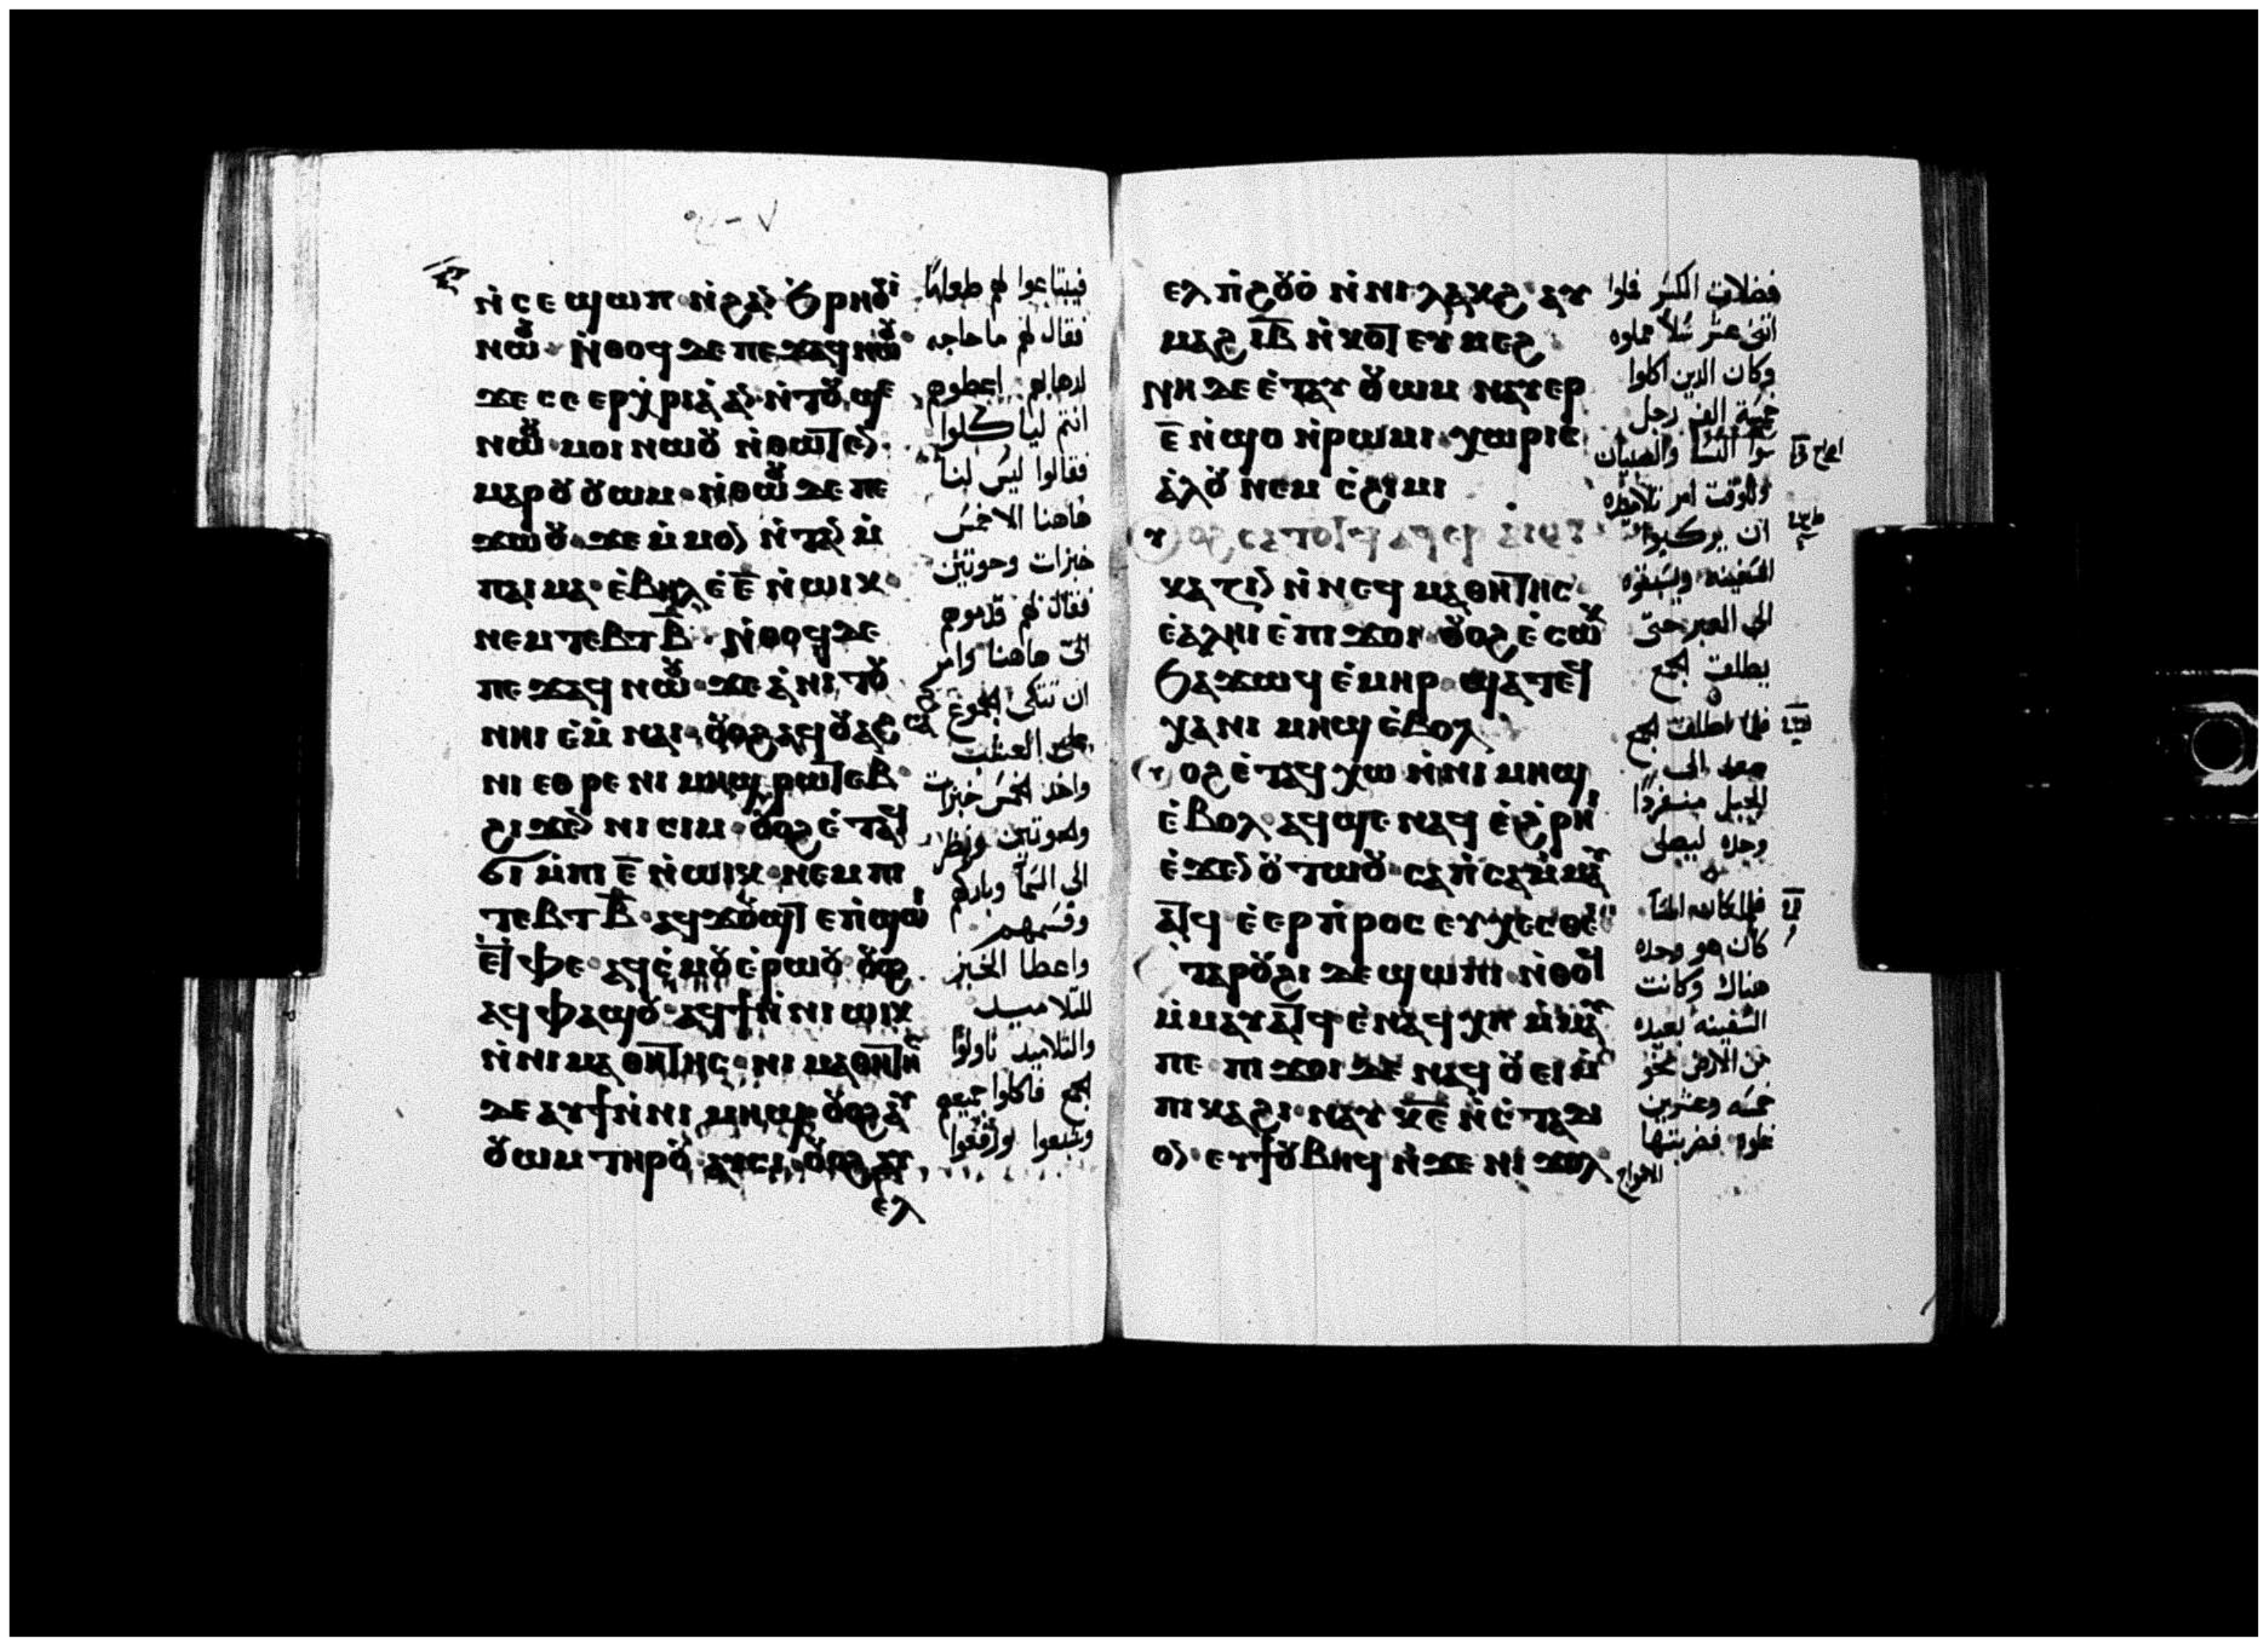 ⲛ̀ⲥⲉϣⲱⲡ ⲛ̀ϩⲁⲛϧⲣⲏⲟⲩⲓ
ⲛⲱⲟⲩ· ⲛ̀ⲑⲟϥ ⲇⲉ ⲡⲉϫⲁϥ ⲛⲱⲟⲩ
ϫⲉ ⲥⲉⲉⲣⲭ̀ⲣⲓⲁ̀ ⲁⲛ ⲛ̀ⲧⲟⲩϣⲉ
ⲛⲱⲟⲩ· ⲙⲟⲓ ⲛⲱⲟⲩ ⲛ̀ⲑⲱⲧⲉⲛ·
ⲙⲁⲣⲟⲩⲟⲩⲱⲙ· ⲛ̀ⲑⲱⲟⲩ ⲇⲉ ⲡⲉ
ϫⲱⲟⲩ· ϫⲉ ⲙ̀ⲙⲟⲛ ⲛ̀ⲧⲁⲛ ⲙ̀
ⲡⲁⲓⲙⲁ· ⲉ̀ⲃⲏⲗ ⲉ̀ⲉ̅ ⲛ̀ⲱⲓⲕ·
ⲛⲉⲙ ⲧⲉⲃⲧ ⲃ̅· ⲛ̀ⲑⲟϥ ⲇⲉ
ⲡⲉϫⲁϥ ⲛⲱⲟⲩ· ϫⲉ ⲁ̀ⲛⲓⲧⲟⲩ
ⲛⲏⲓ ⲉ̀ⲙ̀ⲛⲁⲓ· ⲟⲩⲟϩ ⲁϥⲟⲩⲁϩⲥⲁϩ
ⲛⲓ ⲉⲑⲣⲉ ⲛⲓⲙⲏϣ ⲣⲱⲧⲉⲃ·
ϩⲓϫⲉⲛ ⲛⲓⲥⲓⲙ· ⲟⲩⲟϩ ⲉ̀ⲧⲁϥ
ϭⲓ ⲙ̀ⲡⲓ ⲉ̅ ⲛ̀ⲱⲓⲕ· ⲛⲉⲙ ⲡⲓ
ⲧⲉⲃⲧ ⲃ̅· ⲁϥϫⲟⲩϣⲧ ⲉⲡ̀ϣⲱⲓ
ⲉ̀ⲧⲫⲉ· ⲁϥⲥ̀ⲙⲟⲩ ⲉ̀ⲣⲱⲟⲩ· ⲟⲩⲟϩ
ⲁϥⲫⲁϣⲟⲩ· ⲁϥϯ ⲛ̀ⲛⲓⲱⲓⲕ
ⲛ̀ⲛⲓⲙⲁⲑⲏⲧⲏⲥ· ⲛⲓⲙⲁⲑⲏⲧⲏⲥ
ⲇⲉ ⲁⲩϯ ⲛ̀ⲛⲓⲙⲏϣ· ⲟⲩⲟϩ ⲁⲩ
ⲟⲩⲱⲙ ⲧⲏⲣⲟⲩ· ⲁⲩⲥⲓ· ⲟⲩⲟϩ ⲁⲩ
ⲉⲗ
فيبتاعوا لهم طعاما
فقال لهم ما حاجه
لدهابهم اعطوهم
انتم لياكلوا
فقالوا ليس لنا
هاهنا الا خمس
خبزات وحوتين
فقال لهم قدموهم
الى هاهنا وامر
ان تتكى الجموع
على العشب
واخد الخمس خبزات
والحوتين ونظر
الى السما وباركهم
وقسمهم
واعطا الخبز
للتلاميد
والتلاميد ناولوا
الجمع فاكلوا جميعهم
وشبعوا ورفعوا
ⲉⲗ ⲡ̀ϩⲟⲩⲟ̀ ⲛ̀ⲛⲓⲗⲁⲕϩ ⲁⲩ
ⲙⲁϩ ⲓ̅ⲃ̅ ⲛ̀ⲕⲟⲧ ⲉⲩⲙⲉϩ
ⲛⲏ ⲇⲉ ⲉ̀ⲧⲁⲩⲟⲩⲱⲙ ⲛⲁⲩⲉⲣ
ⲉ̅ ⲛ̀ϣⲟ ⲛ̀ⲣⲱⲙⲓ· ⲭⲱⲣⲓⲥ
ⲁ̀ⲗⲟⲩ ⲛⲉⲙ ⲥ̀ϩⲓⲙⲓ
ⲟⲩⲟϩ ⲥⲁⲧⲟⲧϥ ⲁϥⲉⲣ
ⲕⲁⲍⲓⲛ ⲛ̀ⲛⲉϥⲙⲁⲑⲏⲧⲏⲥ
ⲉ̀ⲁⲗⲏⲓ ⲉ̀ⲡⲓϫⲟⲓ ⲟⲩⲟϩ ⲉ̀ⲥⲱⲕ
ϧⲁϫⲱϥ ⲉ̀ⲙⲏⲣ· ϣⲁⲧⲉϥ
ⲭⲁ ⲛⲓⲙⲏϣ ⲉ̀ⲃⲟⲗ
ⲟⲩⲟϩ ⲉ̀ⲧⲁϥⲭⲱ ⲛ̀ⲛⲓⲙⲏϣ
ⲉ̀ⲃⲟⲗ· ⲁϥϣⲉ ⲛⲁϥ ⲉ̀ϩ̀ⲣⲏⲓ
ⲉ̀ϫⲉⲛ ⲟⲩⲧⲱⲟⲩ· ⲥⲁⲡ̀ⲥⲁ ⲙ̀ⲙⲁⲩ
ⲁⲧϥ ⲉ̀ⲉⲣⲡ̀ⲣⲟⲥⲉⲩⲭⲉⲥⲑⲉ
ⲧⲁⲣⲟⲩϩⲓ ⲇⲉ ϣⲱⲡⲓ· ⲛ̀ⲑⲟϥ
ⲙ̀ⲙⲁⲩⲁⲧϥ ⲉ̀ⲛⲁϥⲭⲏ ⲙ̀ⲙⲁⲩ
ⲡⲉ· ⲡⲓϫⲟⲓ ⲇⲉ ⲛⲁϥⲟⲩⲉⲓ ⲙ̀
ⲡⲓⲕⲁϩⲓ· ⲛⲁⲩ ⲕ̅ⲉ̅ ⲛ̀ⲥ̀ⲧⲁⲇ
ⲟⲛ· ⲉⲩϯⲟⲩⲃⲏϥ ⲛ̀ϫⲉ ⲛⲓϫⲟⲗ
فضلات الكسر فلوا
اثنى عشر سلا مملوه
وكان الدين اكلوا
خمسة الف رجل
سوا النسا والصبيان
وللوقت امر تلاميده
ان يركبوا
السفينه ويسبقوه
الى العبر حتى
يطلق الجمع
فلما اطلق الجمع
صعد الى
الجبل منفردا
وحده ليصلى
فلما كان المسا
كان هو وحده
هناك وكانت
السفينه بعيده
من الارض نحو
خمسه وعشرين
غلوه فضربتها
الامواج